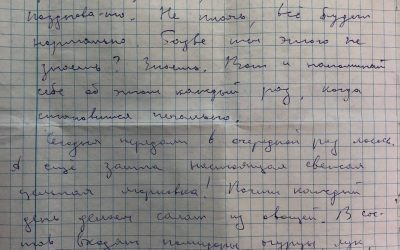 поздновато. Не плачь, всё будет
нормально. Разве ты этого не
знаешь? Знаешь. Вот и напоминай
себе об этом каждый раз, когда
становится печально.
Сегодня передали в очередной раз лосось.
А ещё зашла настоящая свежая
цельная морковка! Почти каждый
день делаем салат из овощей. В сос-
тав входят помидоры, огурцы, лук,